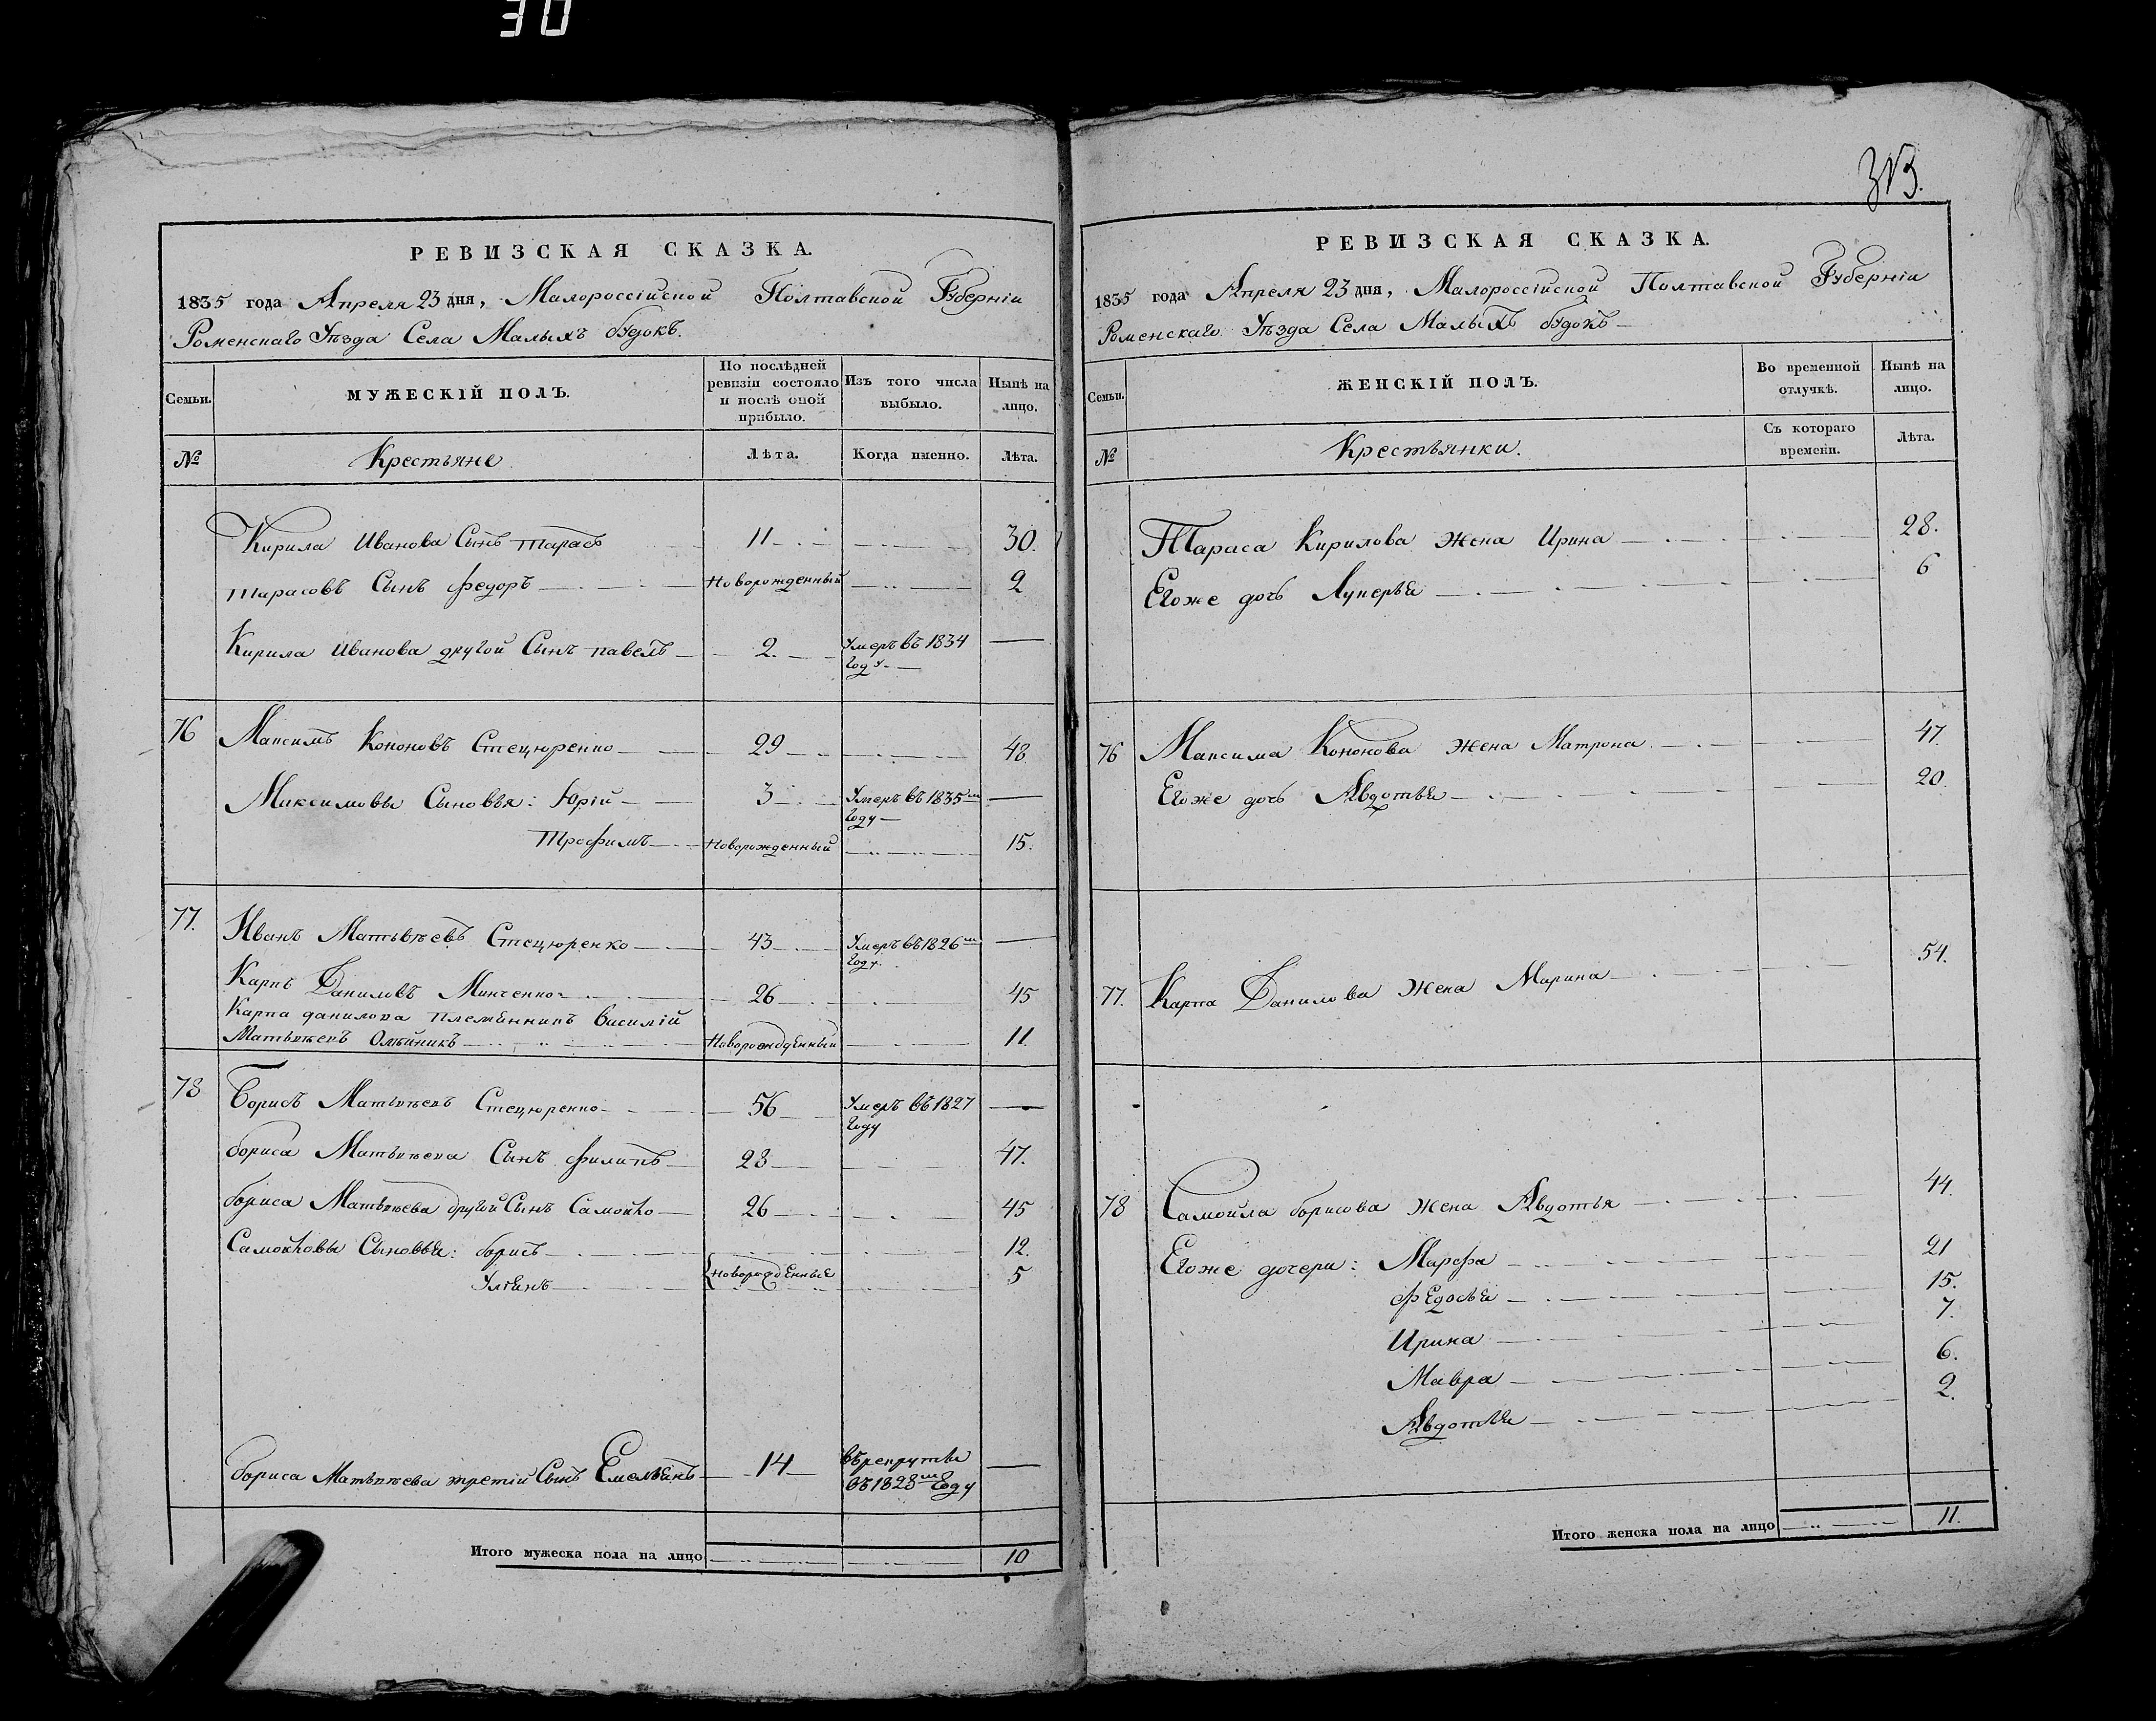 30
РЕВИЗСКАЯ СКАЗКА.
1835 года Апреля 23 дня, Малороссійской Полтавской Губерніи
Роменскаго Уѣзда Села Малыхъ будокъ.
Семьи.
МУЖЕСКІЙ ПОЛЪ.
По послѣдней ревизіи состояло и послѣ оной прибыло.
Изъ того числа выбыло.
Нынѣ на лицо.
№ Крестьяне Лѣта. Когда именно. Лѣта.
Кирила Иванова Сынъ тарасъ 11 30.
тарасовъ Сынъ федоръ Новорожденный 2
Кирила Иванова другой Сынъ павелъ 2. Умеръ въ 1834 году
76 Максимъ Кононовъ Стецюренко 29 48
Максимовы Сыновья: Юрій 3 Умеръ въ 1835м году
Трофимъ Новорожденный 15.
77. Иванъ Матвѣевъ Стецюренко 43 Умеръ въ 1826м году.
Карпъ Даниловъ Минченко 26 45
Карпа данилова племянникъ Василій
Матвѣевъ Олѣйникъ Новорожденный 11
78 Борисъ Матвѣевъ Стецюренко 56 Умеръ въ 1827 году
бориса Матвѣева Сынъ филипъ 28 47.
бориса Матвѣева другой Сынъ Самойло 26 45
Самойловы Сыновья: борисъ 12.
Уліянъ новорожденные 5
бориса Матвѣева третій Сынъ Емельянъ 14 въ рекруты въ 1828м году
Итого мужеска пола на лицо 10
313.
РЕВИЗСКАЯ СКАЗКА.
1835 года Апреля 23 дня, Малороссійской Полтавской Губерніи
Роменскаго Уѣзда Села Малыхъ будокъ
Семьи.
ЖЕНСКІЙ ПОЛЪ.
Во временной отлучкѣ.
Нынѣ на лицо.
№ Крестьянки. Съ котораго времени. Лѣта.
Тараса Кирилова жена Ирина 28.
Егоже дочь Лукерья 6
76 Максима Кононова жена Матрона 47.
Егоже дочь Авдотья 20.
77. Карпа Данилова жена Марина 54.
78 Самойла борисова жена Авдотья 44.
Егоже дочери: Марфа 21
федосья 15.
Ирина 7.
Мавра 6.
Авдотья 2.
Итого женска пола на лицо 11.